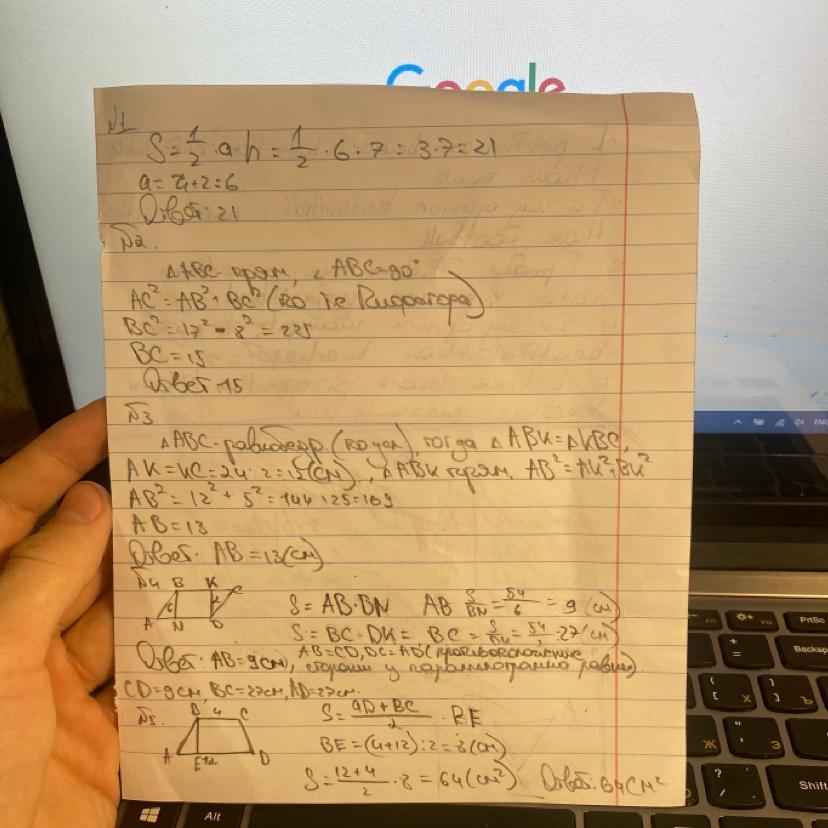 Google
№1
S = 1/2 · a · h = 1/2 · 6 · 7 = 3·7 = 21
a = 4+2 = 6
Ответ: 21
№2.
△ABC - прям, ∠ABC=90°
AC² = AB² + BC² (по те Пифагора)
BC² = 17² - 8² = 225
BC = 15
Ответ: 15
№3
△ABC - равнобедр. (по усл), тогда △ABK = △KBC,
AK = KC = 24 : 2 = 12 (см), △ABK прям. AB² = AK² + BK²
AB² = 12² + 5² = 144 + 25 = 169
AB = 13
Ответ: AB = 13 (см)
№4 B K C
A N D
S = AB·BN AB S/BN = 54/6 = 9 (см)
S = BC·DK = BC = S/DK = 54/2 · 27 (см)
AB = CD, BC = AD (противоположные
Ответ: AB = 9 см), стороны у параллелограмма равны)
CD = 9 см, BC = 27 см, AD = 27 см.
№5. B 4 C
A E 12 D
S = (AD + BC)/2 · BE
BE = (4+12) : 2 = 8 (см)
S = (12+4)/2 · 8 = 64 (см²) Ответ: 64 см²
ENG
PrtSc
Backsp
Х
Ъ
Ж
Э
Shift
Alt